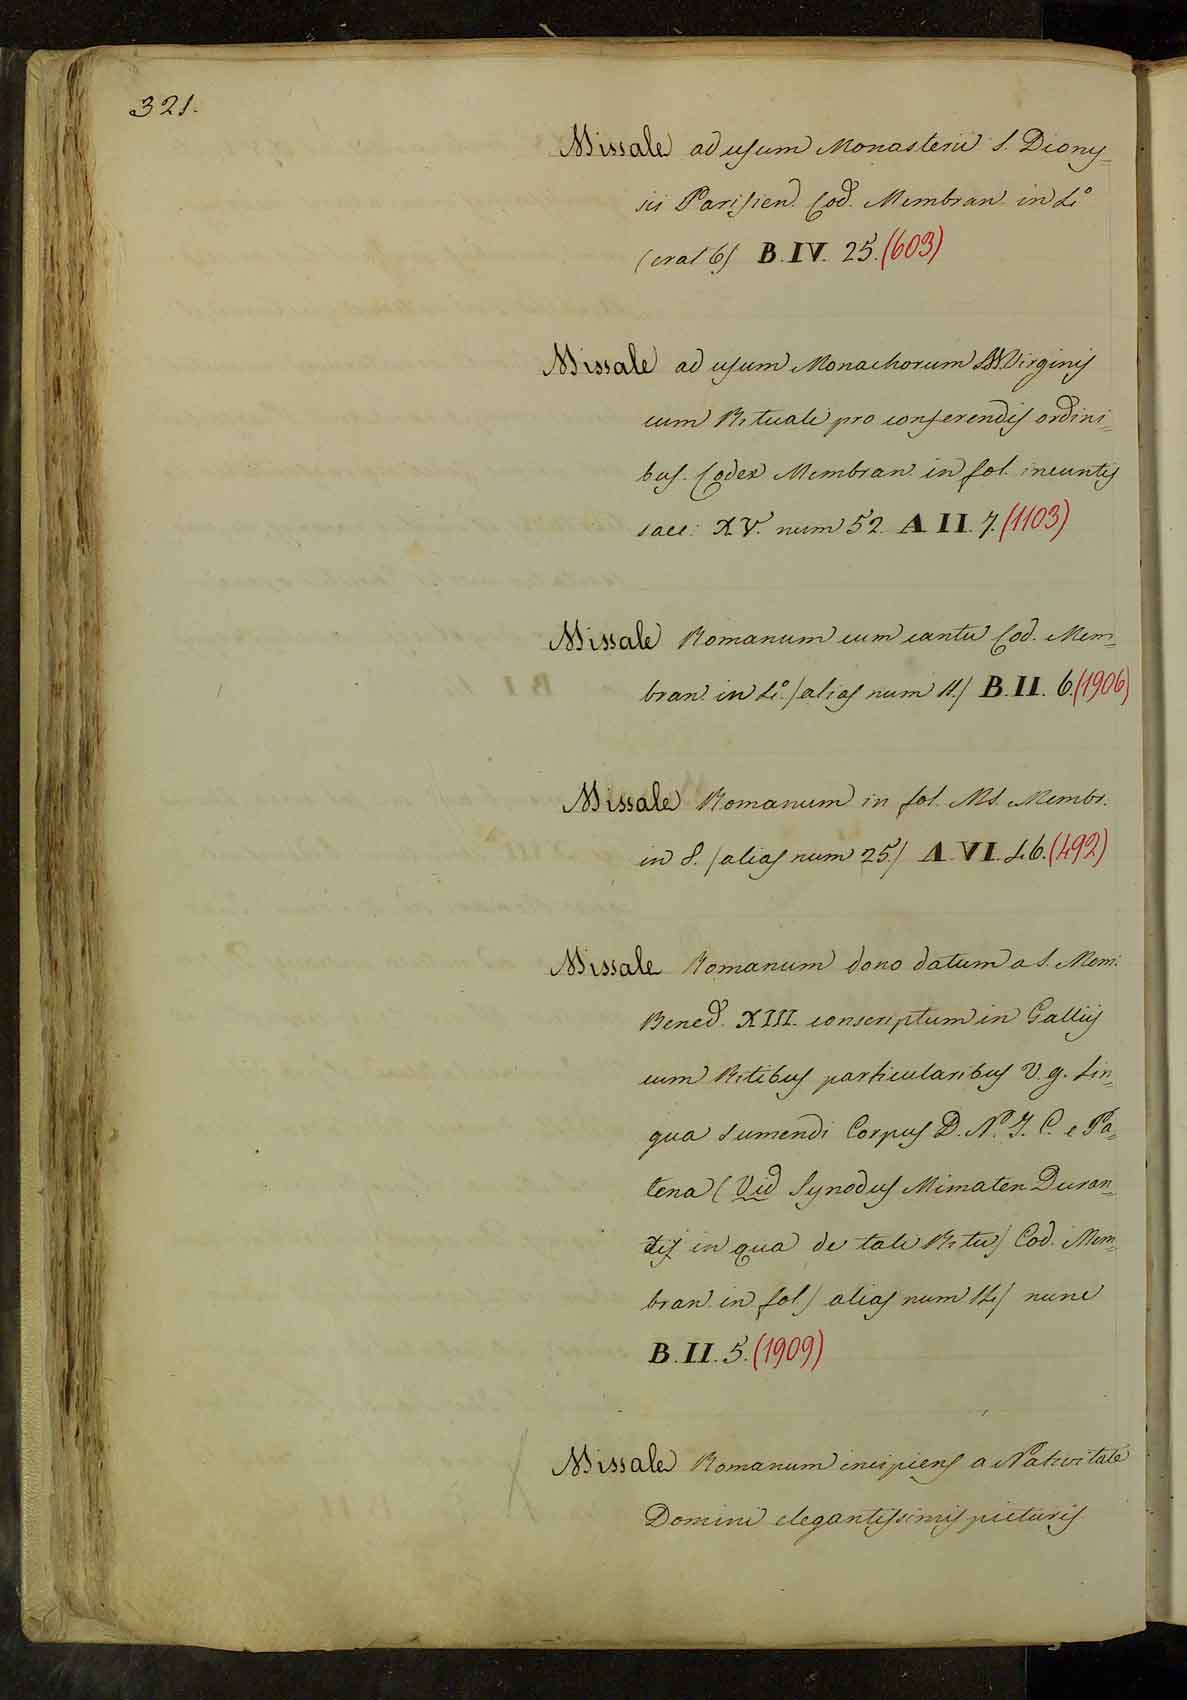 321.
Missale ad usum Monasterii S. Diony-
sii Parisien. Cod. Membran. in 4.º
(erat 6) B. IV. 25. (603)
Missale ad usum Monachorum Virginis
cum Rituali pro conferendis ordini-
bus. Codex Membran. in fol. ineuntis
saec: XV. num 52. A II. 7. (1103)
Missale Romanum cum cantu Cod. Mem-
bran. in 4.º (alias num 11.) B. II. 6. (1906)
Missale Romanum in fol. Ms. Membr.
in 8. (alias num 25.) A. VI. 46. (492)
Missale Romanum dono datum a S. Mem:
Bened. XIII. conscriptum in Galliis
cum Ritibus particularibus V. g. Lin-
gua sumendi Corpus D. N. J. C. e Pa-
tena (Vid Synodus Mimaten Duran-
tis in qua de tali Ritu) Cod. Mem-
bran. in fol) alias num 14) nunc
B. II. 5. (1909)
Missale Romanum incipiens a Nativitate
Domini elegantissimis picturis